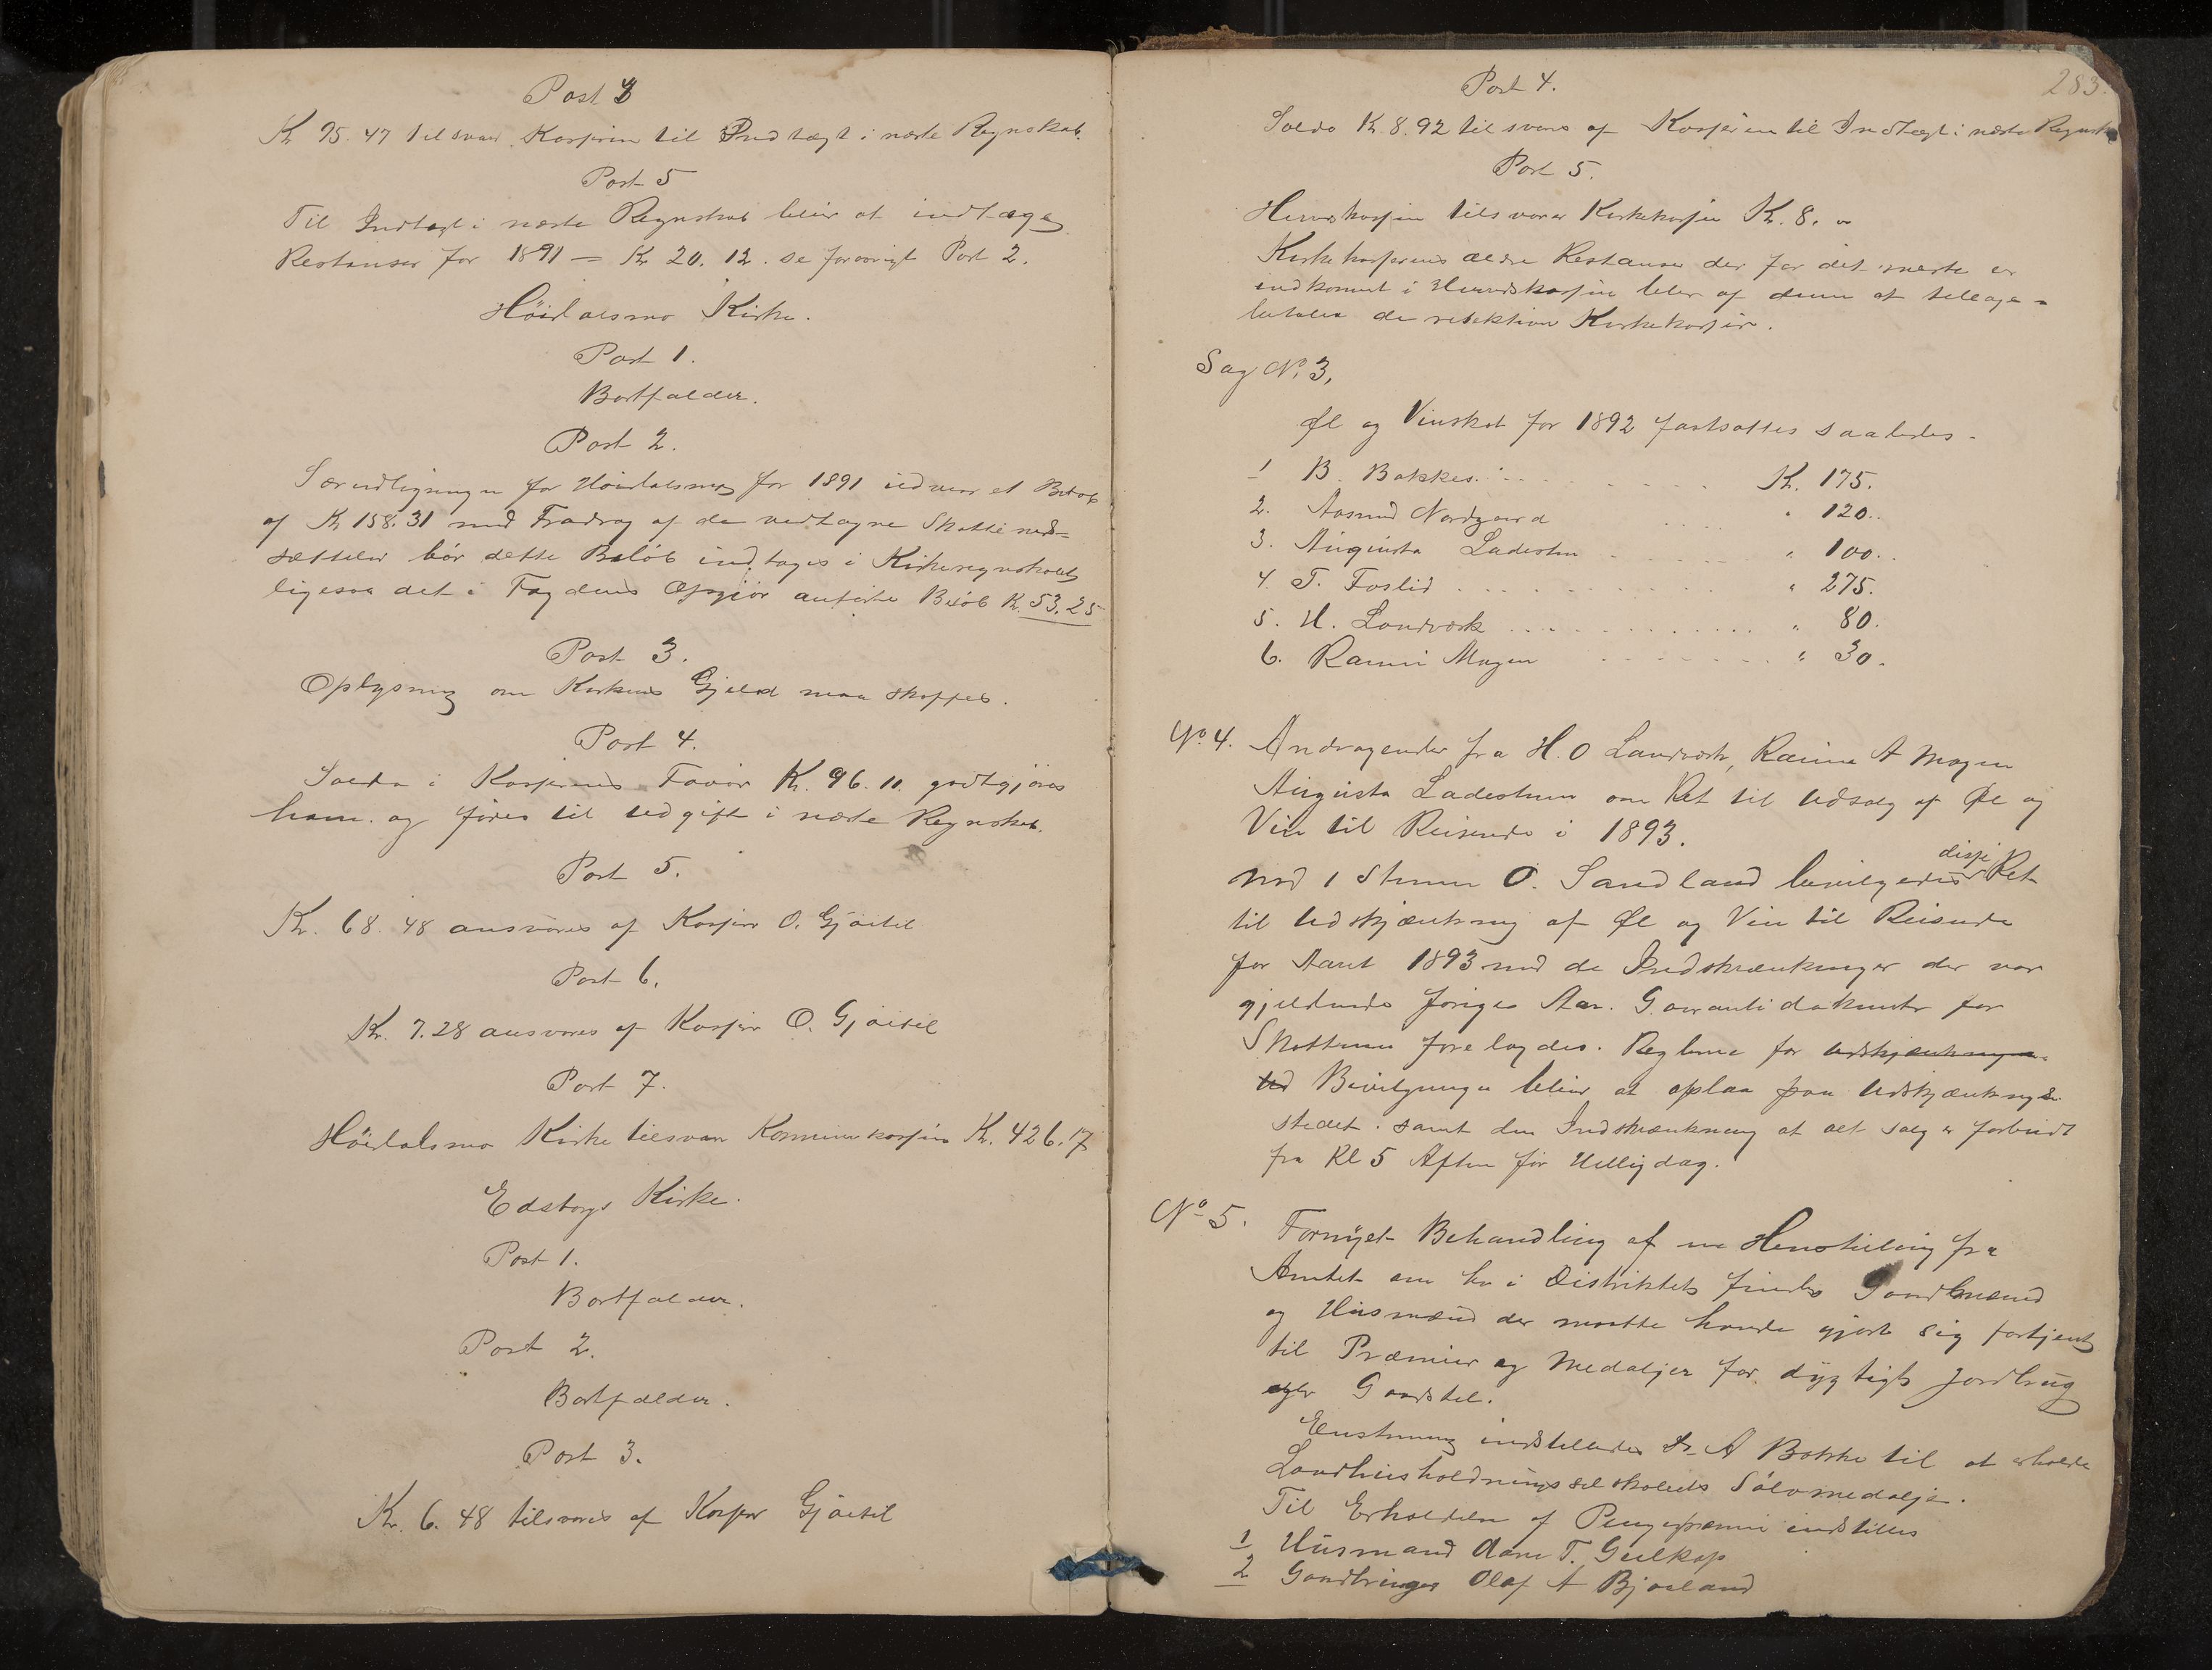 Post 4
Kr 95.47 tilsvares Kasseren til Indtægt i næste Regnskab.
Post 5
Til Indtægt i næste Regnskab bliver at indtage
Restanser for 1891 = Kr 20.12. se forøvrigt Post 2.
Høidalsmo Kirke.
Post 1.
Bortfalder.
Post 2.
Særudligningen for Høidalsmo for 1891 udviser et Beløb
af Kr 158.31 med Fradrag af de vedtagne Skattened-
sættelser bør dette Beløb indtages i Kirkeregnskabet
ligesaa det i Fogdens Opgjør anførte Beløb Kr. 53.25
Post 3.
Oplysning om Kirkens Gjæld maa skaffes.
Post 4.
Saldo i Kasserens Favør Kr. 96.11. godtgjøres
ham. og føres til Udgift i næste Regnskab.
Post 5.
Kr. 68.48 ansvares af Kasserer O. Gjøitil
Post 6.
Kr. 7.28 ansvares af Kasserer O. Gjøitil
Post 7.
Høidalsmo Kirke tilsvarer Kommunekassen Kr. 426.17
Edsborgs Kirke.
Post 1.
Bortfalder.
Post 2.
Bortfalder.
Post 3.
Kr. 6.48 tilsvares af Kasserer Gjøitil
283.
Post 4.
Saldo Kr. 8.92 tilsvares af Kasseren til Indtægt i næste Regnskab
Post 5.
Herredskassen tilsvarer Kirkekassen Kr. 8.
Kirkekasserens ældre Restanser der for det meste er
indkommet i Herredskassen bliver af denne at tilbage-
betales de respektive Kirkekasser.
Sag No. 3,
Øl og Vinskat for 1892 fastsattes saaledes.
1 B. Bakken. Kr. 175.
2. Aasmund Nordgaard " 120.
3. Augusta Ladestuen " 100.
4. T. Foslid " 275.
5. H. Landværk " 80.
6. Rannei Mogen " 30.
No. 4. Andragender fra H. O Landværk, Rannei A Mogen
Augusta Ladestuen om Ret til Udsalg af Øl og
Vin til Reisende i 1893.
Mod 1 Stemme O. Sandland bevilgedes disse Ret
til Udskjænkning af Øl og Vin til Reisende
for Aaret 1893 med de Indskrænkninger der var
gjældende foriges Aar. Garantidokumenter for
Skatterne forelagdes. Reglerne for Udskjænkningen
ved Bevilgningen bliver at opslaa paa Udskjænknings
stedet. samt den Indskrænkning at alt salg er forbudt
fra Kl 5 Aften før Helligdag.
No 5. Fornyet Behandling af en Henstilling fra
Amtet om her i Distriktet findes Gaardmænd
og Husmænd der maatte havde gjort sig fortjent
til Præmier og Medaljer for dygtigt Jordbrug
eller Gaardstel.
Eenstemmig indstilledes Dr. A Bakke til at erholde
Landhusholdningsselskabets Sølvmedalje.
Til Erholdelse af Pengepræmie indstilles
1 Husmand Aane T. Gulkop
2 Gaardbruger Olaf A Bjaaland